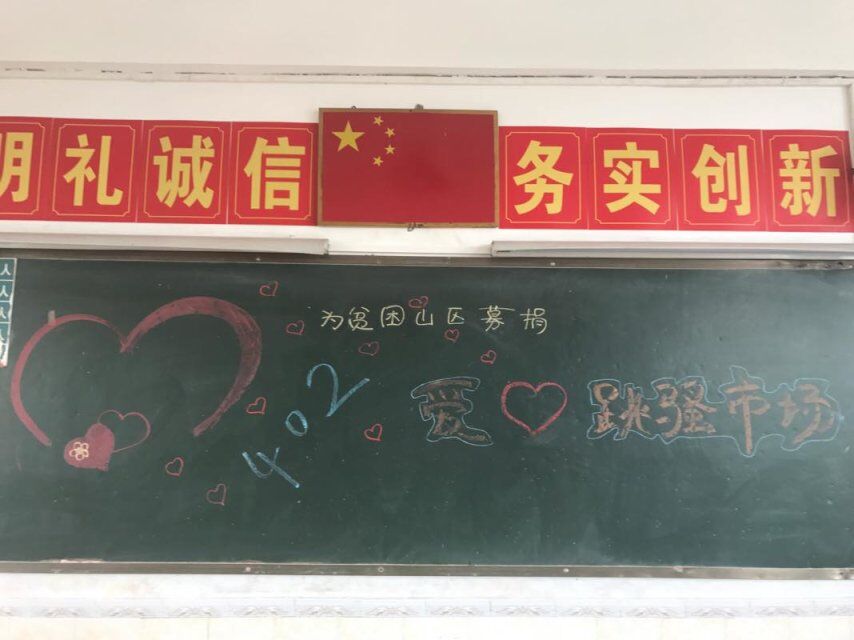 明礼诚信 务实创新
为贫困山区募捐
402
爱 跳骚市场